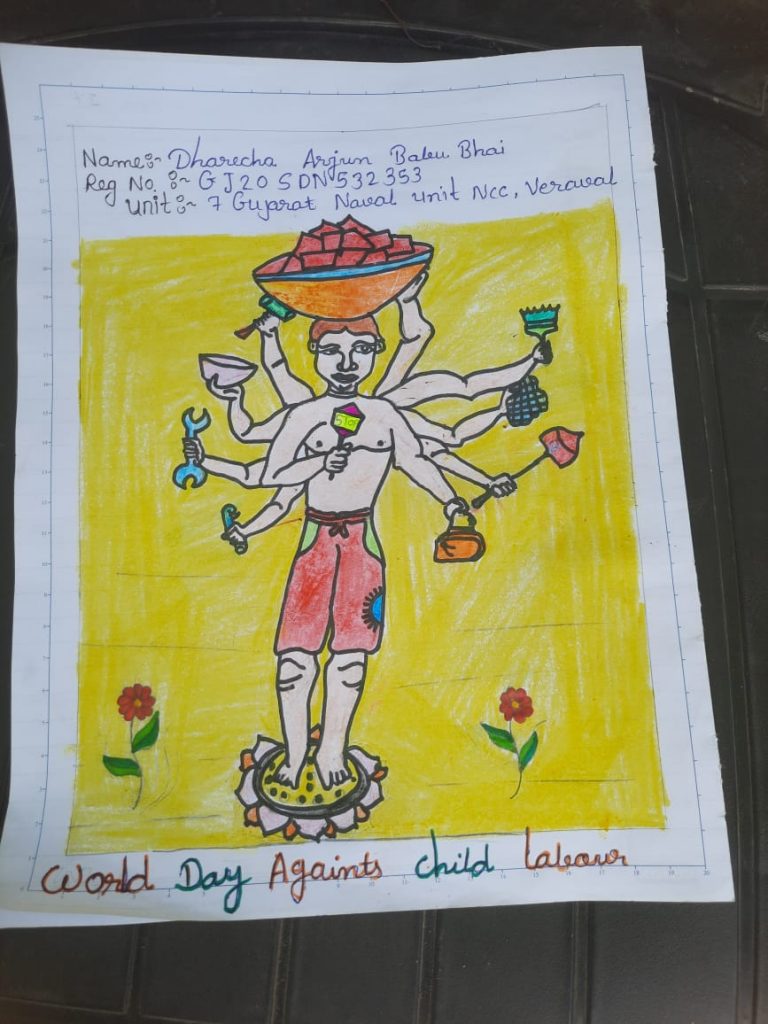 Name:- Dharecha Arjun Babu Bhai
Reg No. :- GJ20SDN532353
Unit :- 7 Gujarat Naval Unit Ncc, Veraval
STOP
World Day Againts child labour